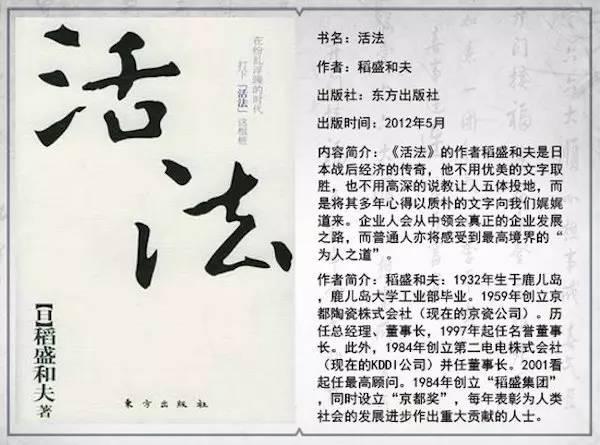 活法
在纷乱浮躁的时代
打下「活法」这根桩
【日】稻盛和夫 著
东方出版社
书名：活法
作者：稻盛和夫
出版社：东方出版社
出版时间：2012年5月
内容简介：《活法》的作者稻盛和夫是日
本战后经济的传奇，他不用优美的文字取
胜，也不用高深的说教让人五体投地，而
是将其多年心得以质朴的文字向我们娓娓
道来。企业人会从中领会真正的企业发展
之路，而普通人亦将感受到最高境界的“
为人之道”。
作者简介：稻盛和夫：1932年生于鹿儿岛
，鹿儿岛大学工业部毕业。1959年创立京
都陶瓷株式会社（现在的京瓷公司）。历
任总经理、董事长，1997年起任名誉董事
长。此外，1984年创立第二电电株式会社
（现在的KDDI公司）并任董事长。2001看
起任最高顾问。1984年创立“稻盛集团”
，同时设立“京都奖”，每年表彰为人类
社会的发展进步作出重大贡献的人士。